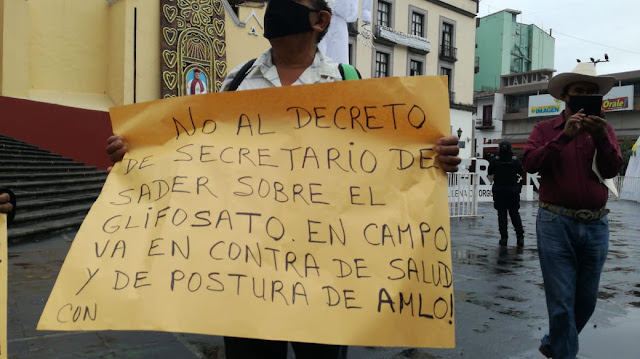 NO AL DECRETO
DE SECRETARIO DE
SADER SOBRE EL
GLIFOSATO. EN CAMPO
VA EN CONTRA DE SALUD
Y DE POSTURA DE AMLO!
CON
IMAGEN
Órale!